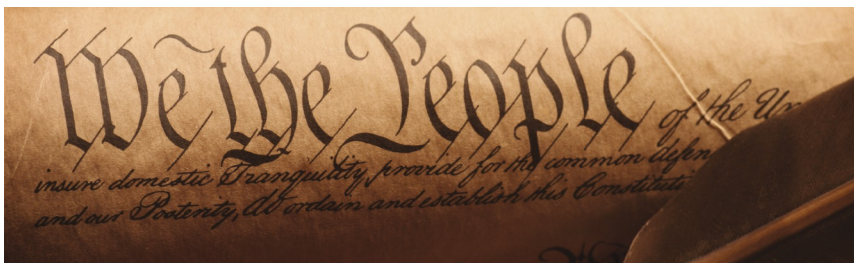 We the People of the Un
insure domestic Tranquility, provide for the common defen
and our Posterity, do ordain and establish this Constituti